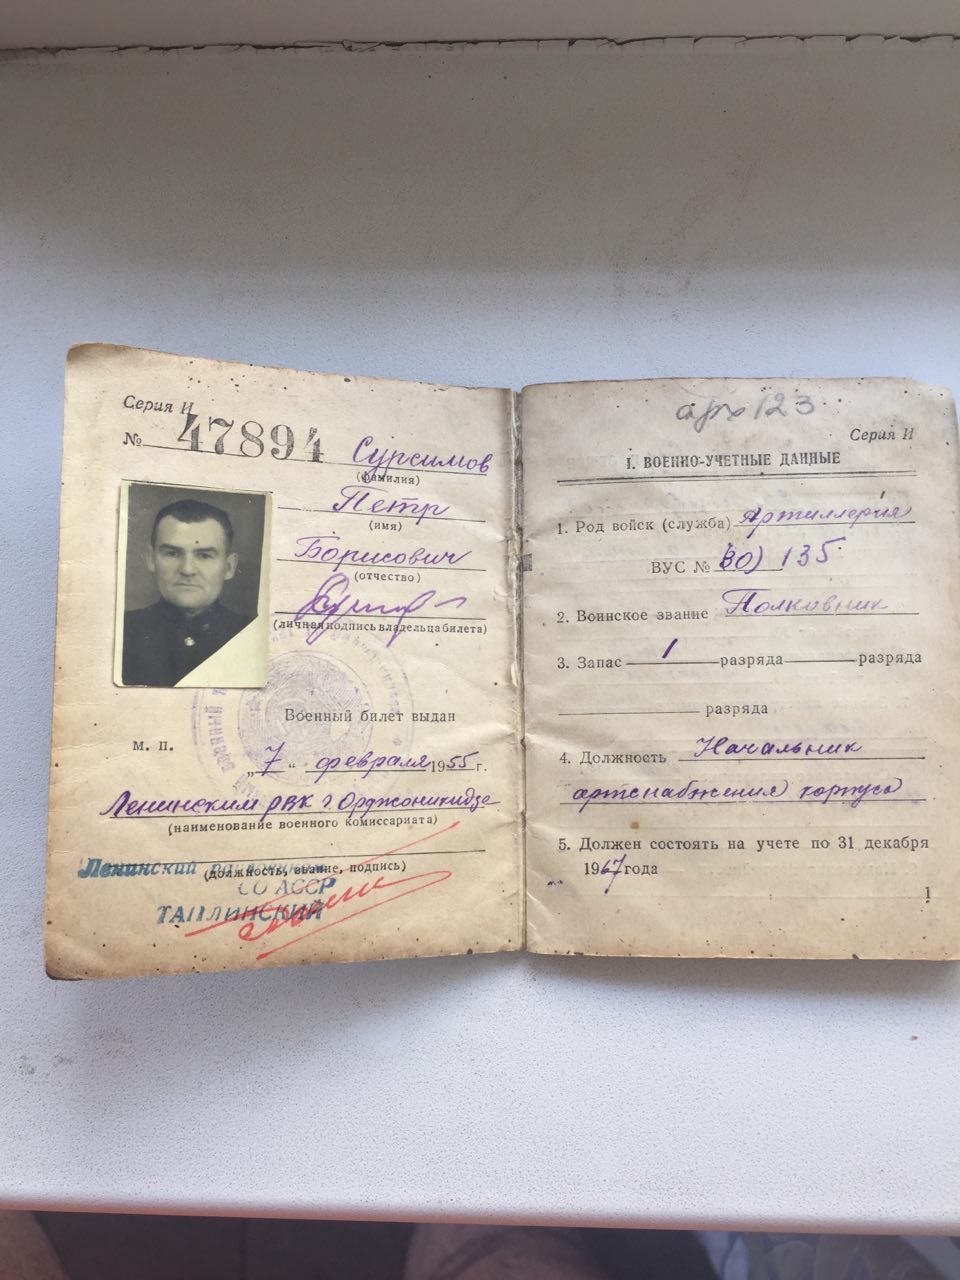 Серия И
№ 47894
Сурсимов
(фамилия)
Петр
(имя)
Борисович
(отчество)
(личная подпись владельца билета)
Военный билет выдан
М. П.
„7“ февраля 1955 г.
Ленинским РВК г. Орджоникидзе
(наименование военного комиссариата)
(должность, звание, подпись)
Ленинский
СО АССР
арх 123
Серия И
I. ВОЕННО-УЧЕТНЫЕ ДАННЫЕ
1. Род войск (служба) Артиллерия
ВУС № 135
2. Воинское звание Полковник
3. Запас 1 разряда разряда
разряда
4. Должность Начальник
артснабжения корпуса
5. Должен состоять на учете по 31 декабря
1967 года
1